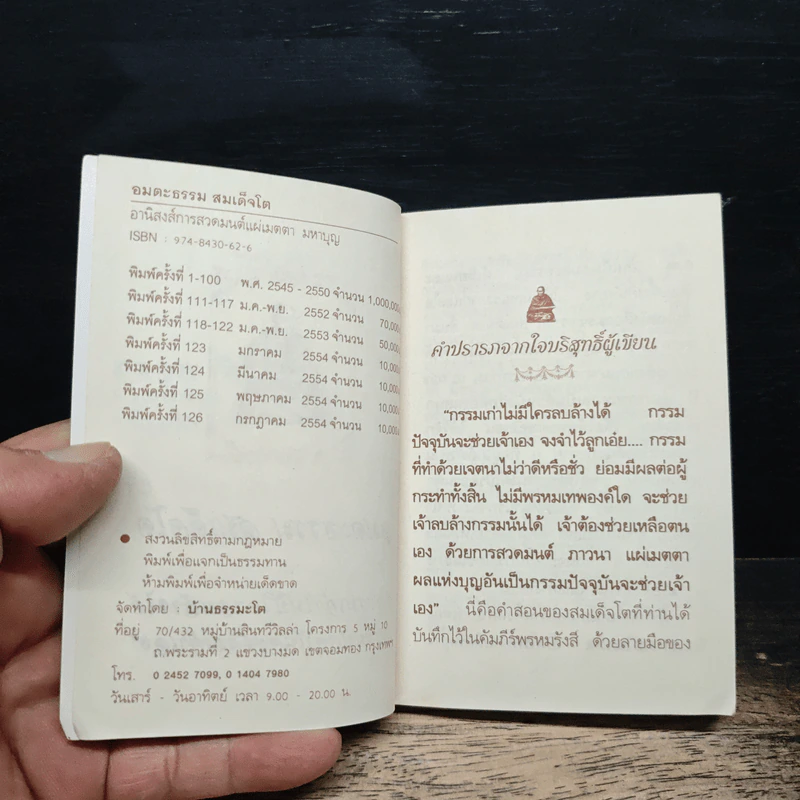 อมตะธรรม สมเด็จโต
อานิสงส์การสวดมนต์แผ่เมตตา มหาบุญ
ISBN : 974-8430-62-6
พิมพ์ครั้งที่ 1-100 พ.ศ. 2545 - 2550 จำนวน 1,000,000
พิมพ์ครั้งที่ 111-117 ม.ค.-พ.ย. 2552 จำนวน 70,000
พิมพ์ครั้งที่ 118-122 ม.ค.-พ.ย. 2553 จำนวน 50,000
พิมพ์ครั้งที่ 123 มกราคม 2554 จำนวน 10,000
พิมพ์ครั้งที่ 124 มีนาคม 2554 จำนวน 10,000
พิมพ์ครั้งที่ 125 พฤษภาคม 2554 จำนวน 10,000
พิมพ์ครั้งที่ 126 กรกฎาคม 2554 จำนวน 10,000
● สงวนลิขสิทธิ์ตามกฎหมาย
พิมพ์เพื่อแจกเป็นธรรมทาน
ห้ามพิมพ์เพื่อจำหน่ายเด็ดขาด
จัดทำโดย : บ้านธรรมะโต
ที่อยู่ 70/432 หมู่บ้านสินทวีวิลล่า โครงการ 5 หมู่ 10
ถ.พระรามที่ 2 แขวงบางมด เขตจอมทอง กรุงเทพฯ
โทร. 0 2452 7099, 0 1404 7980
วันเสาร์ - วันอาทิตย์ เวลา 9.00 - 20.00 น.
คำปรารภจากใจบริสุทธิ์ผู้เขียน
"กรรมเก่าไม่มีใครลบล้างได้ กรรม
ปัจจุบันจะช่วยเจ้าเอง จงจำไว้ลูกเอ๋ย.... กรรม
ที่ทำด้วยเจตนาไม่ว่าดีหรือชั่ว ย่อมมีผลต่อผู้
กระทำทั้งสิ้น ไม่มีพรหมเทพองค์ใด จะช่วย
เจ้าลบล้างกรรมนั้นได้ เจ้าต้องช่วยเหลือตน
เอง ด้วยการสวดมนต์ ภาวนา แผ่เมตตา
ผลแห่งบุญอันเป็นกรรมปัจจุบันจะช่วยเจ้า
เอง" นี่คือคำสอนของสมเด็จโตที่ท่านได้
บันทึกไว้ในคัมภีร์พรหมรังสี ด้วยลายมือของ